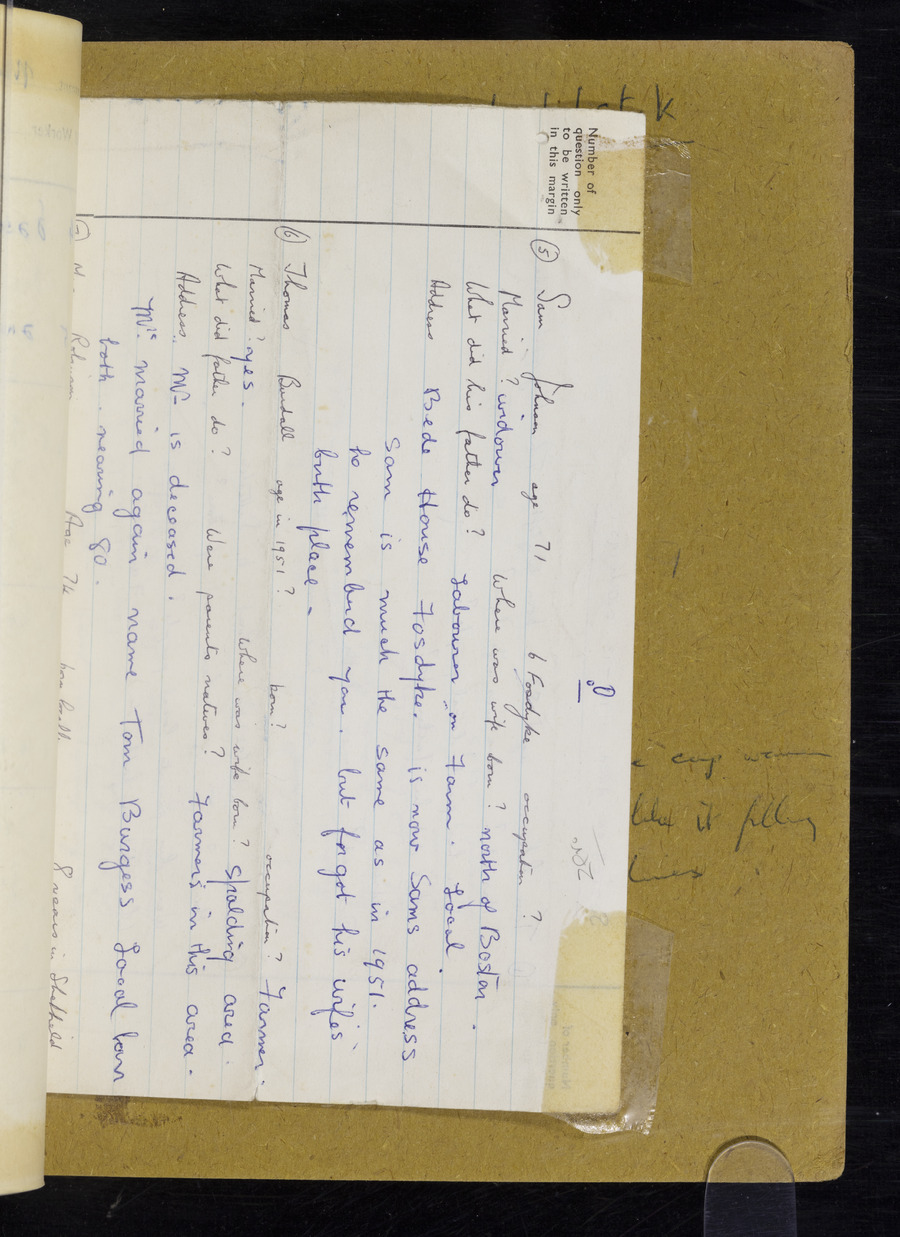 Number of
question only
to be written
in this margin
⑤ Sam Johnson age 71 b Fosdyke occupation ?
Married ? widower Where was wife born ? north of Boston .
What did his father do ? Labourer on Farm . Local .
Address Bede House Fosdyke. is now Sams address
Sam is much the same as in 1951.
he remembered you. but forgot his wife's
birth place .
⑥ Thomas Burdall age in 1951 ? born ? occupation ? Farmer .
Married ? yes . Where was wife born ? Spalding area .
What did father do ? Were parents natives ? Farmers in this area .
Address. Mr is deceased .
Mrs. married again name Tom Burgess Local born
both . nearing 80 .
Robinson Age 74 8 years in Sheffield